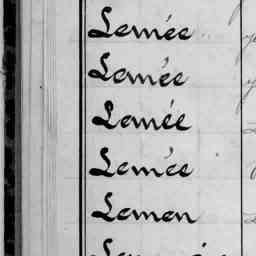 Lemée
Lemée
Lemée
Lemée
Lemen